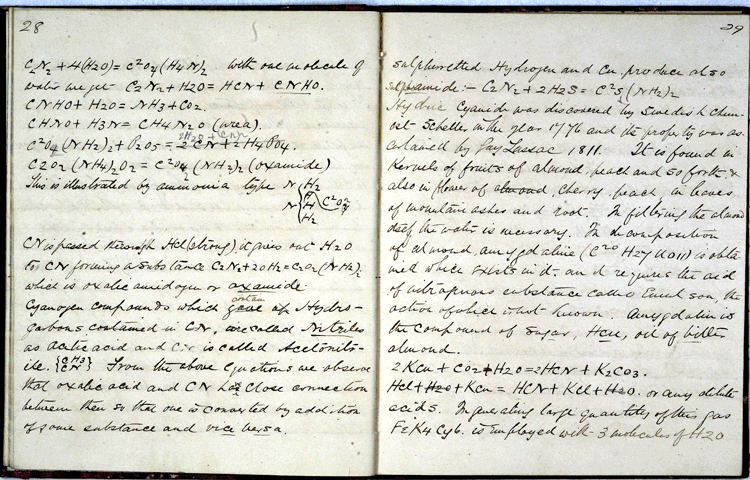 28
C2N2 + 4(H2O) = C2O4(H4N)2 with one molecule of
water we get C2N2 + H2O = HCN + CNHO.
CNHO + H2O = NH3 + CO2.
CHNO + H3N = CH4N2O (urea).
C2O2(NH2)2 + P2O5 = 2CN + 2H4PO4.
C2O2(NH4)2O2 = C2O4(NH2)2 (oxamide)
This is illustrated by ammonia type N H2
N H C2O2
H2
CN is passed through HCl (strong) it gives out H2O
to CN forming a substance C2N2 + 2OH2 = C2O2(NH2)2
which is oxalic amidogen or oxamide.
contain
Cyanogen compounds which give up Hydro-
carbons contained in CN, are called Nitriles
as acetic acid and CN is called Acetonitr-
ile. {CH3 CN} From the above Equations we observe
that oxalic acid and CN has close connection
between then so that one is converted by addition
of some substance and vice versa.
29
sulphuretted Hydrogen and CN produce also
sulphamide :– C2N2 + 2H2S = C2S2(NH2)2
Hydric Cyanide was discovered by Swedish chem-
ist Schelle, in the year 1776 and its property was as-
certained by Gay Lussac 1811. It is found in
Kernels of fruits of almond, peach and so forth &
also in flower of almond, cherry, peach, in leaves
of mountain ashes and root. In filtering the almond
itself the water is necessary. In decomposition
of almond, amygdaline (C20 H27 NO11) is obtai
ned which exists in it. and requires the aid
of nitrogenous substance called Emulson, the
action of which is not known. Amygdalin is
the compound of sugar, HCN, oil of bitter
almond.
2KCN + CO2 + H2O = 2HCN + K2CO3.
HCl + H2O + KCN = HCN + KCl + H2O. or any dilute
acids. In generating large quantities of this gas
FeK4Cy6. is Employed with 3 molecules of H2O